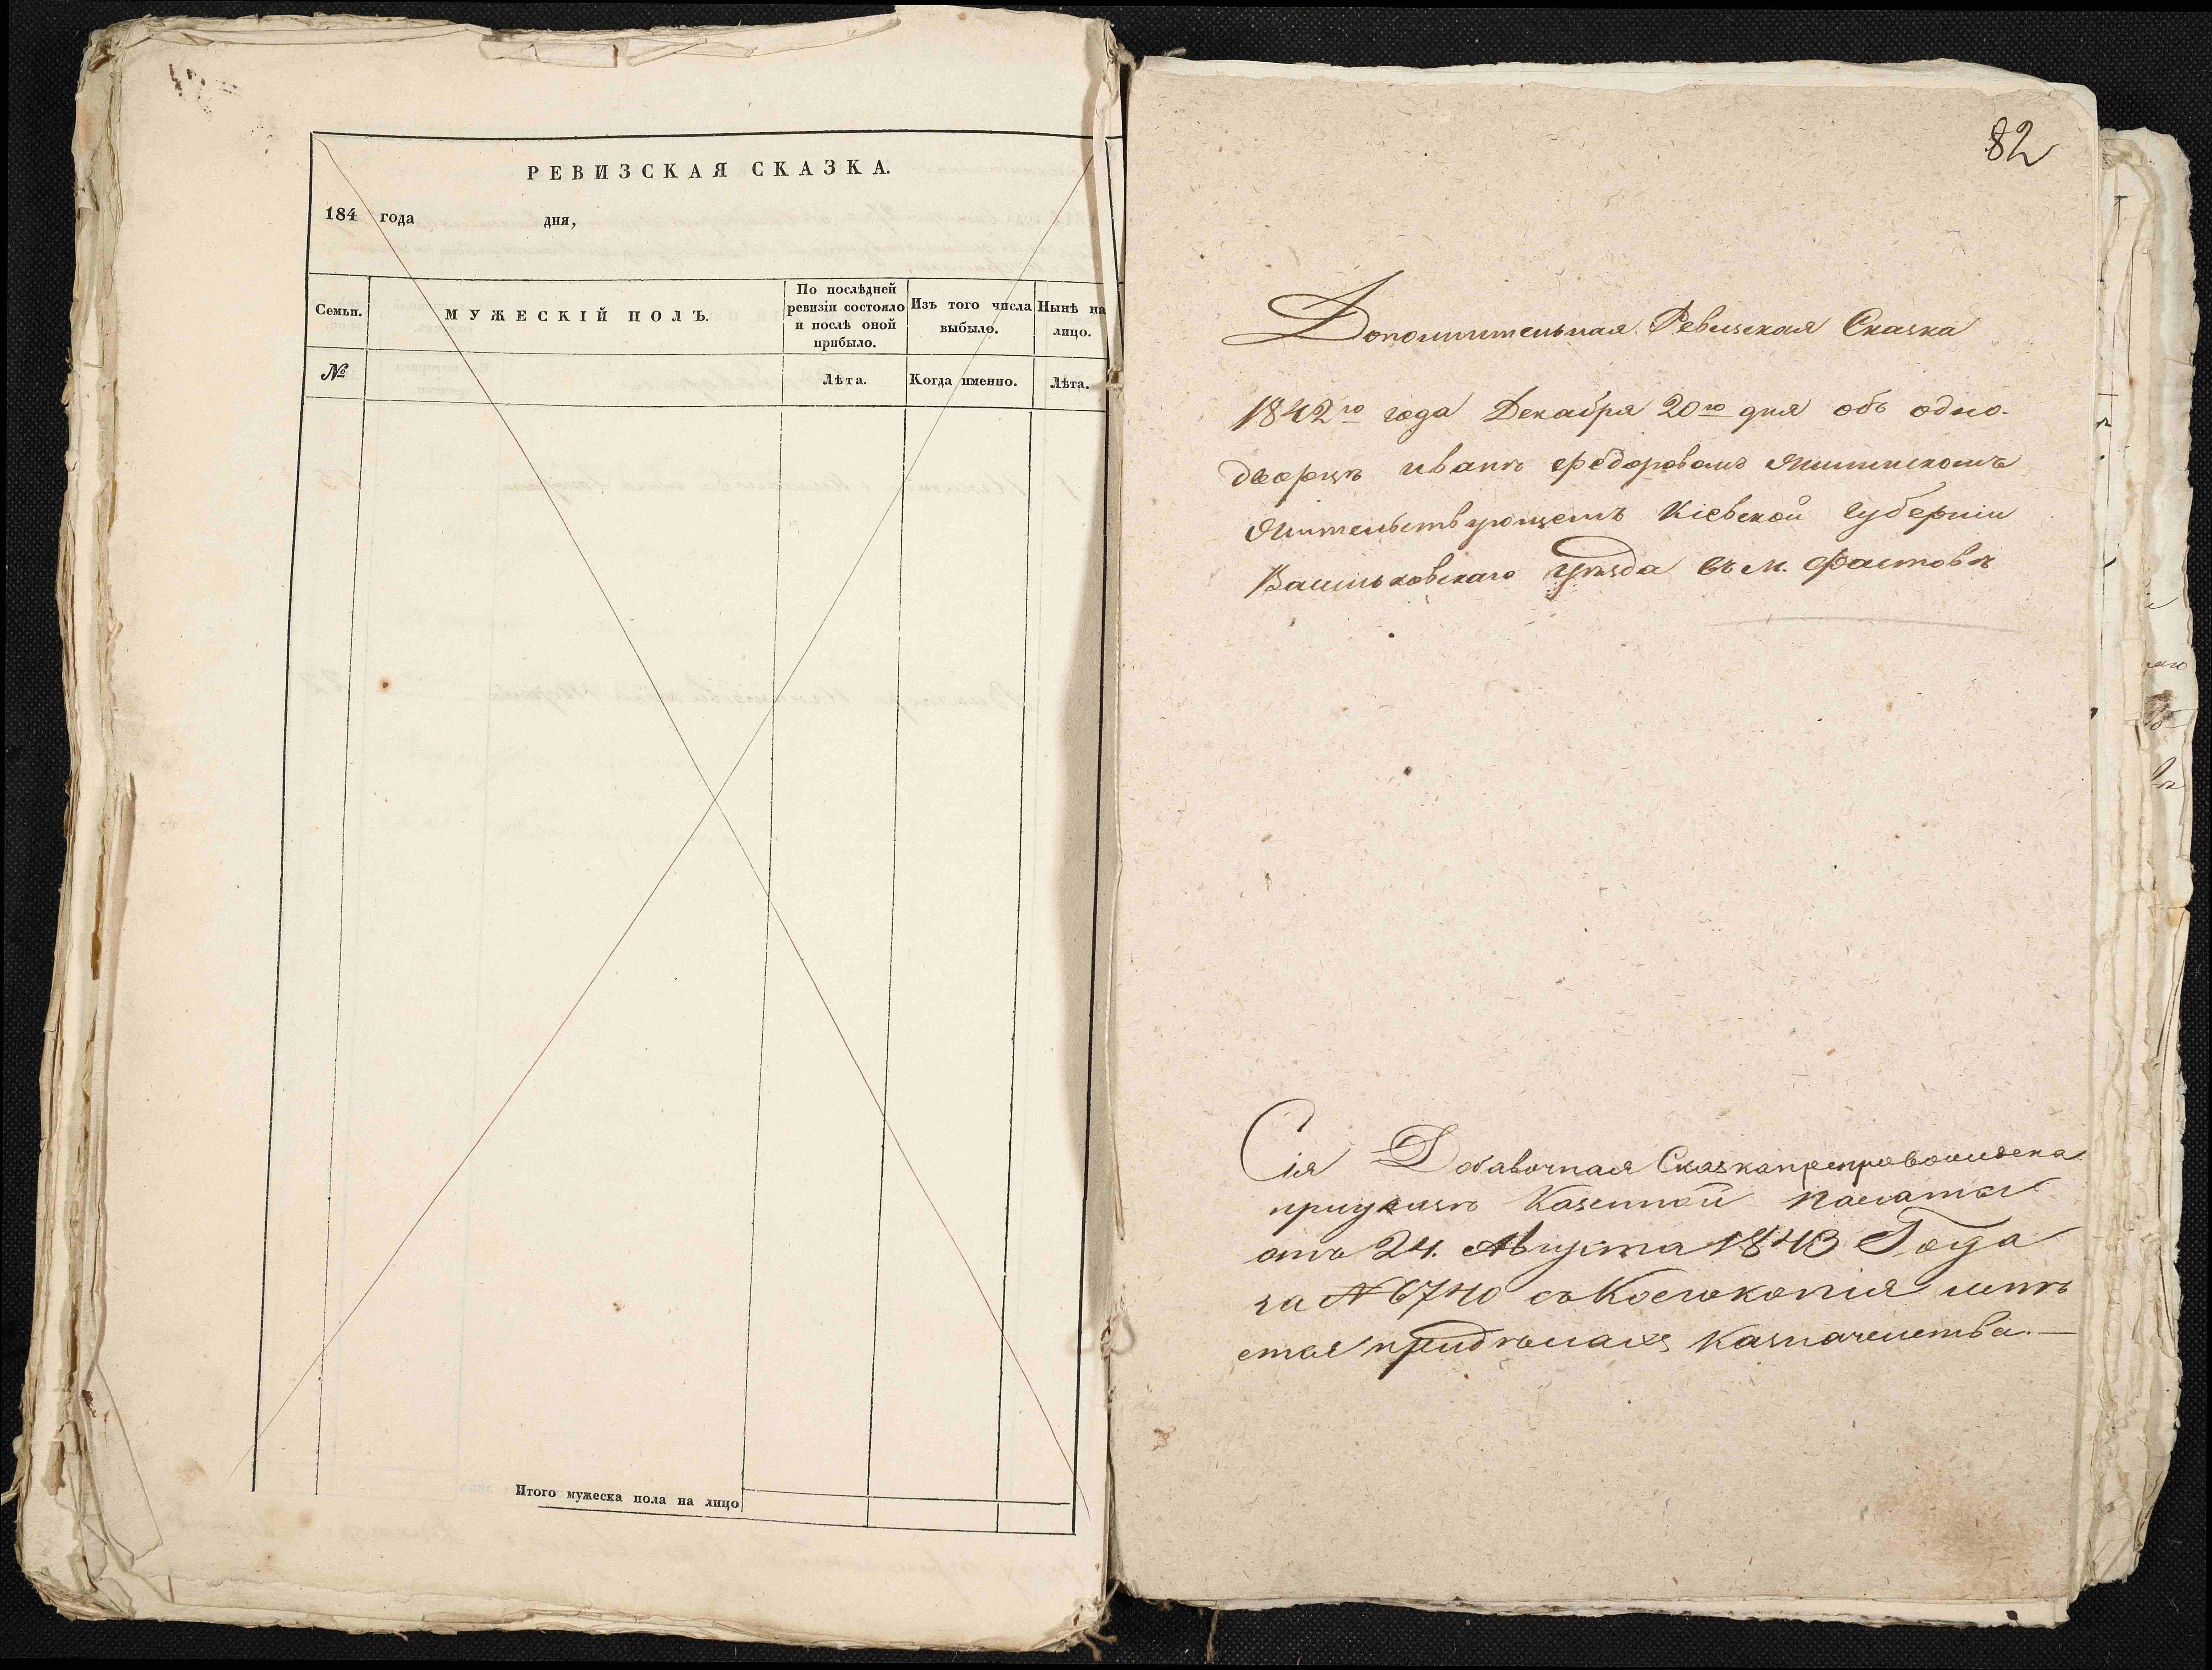 РЕВИЗСКАЯ СКАЗКА.
184 года дня,
Семьи.
МУЖЕСКІЙ ПОЛЪ.
По послѣдней ревизіи состояло и послѣ оной прибыло.
Изъ того числа выбыло.
Нынѣ на лицо.
№
Лѣта.
Когда именно.
Лѣта.
Итого мужеска пола на лицо
82
Дополнительная Ревизская Сказка
1842го года Декабря 20го дня объ одно-
дворцѣ Иванѣ Федоровомъ
Жительствующемъ Кіевской Губерніи
Васильковскаго Уѣзда въ м. Фастовѣ
Сія Добавочная Сказка препровождена
при указѣ Казенной Палаты
отъ 24. Августа 1843 Года
за № 6740 съ коего копія имѣ
ется при дѣлахъ Казначейства.—